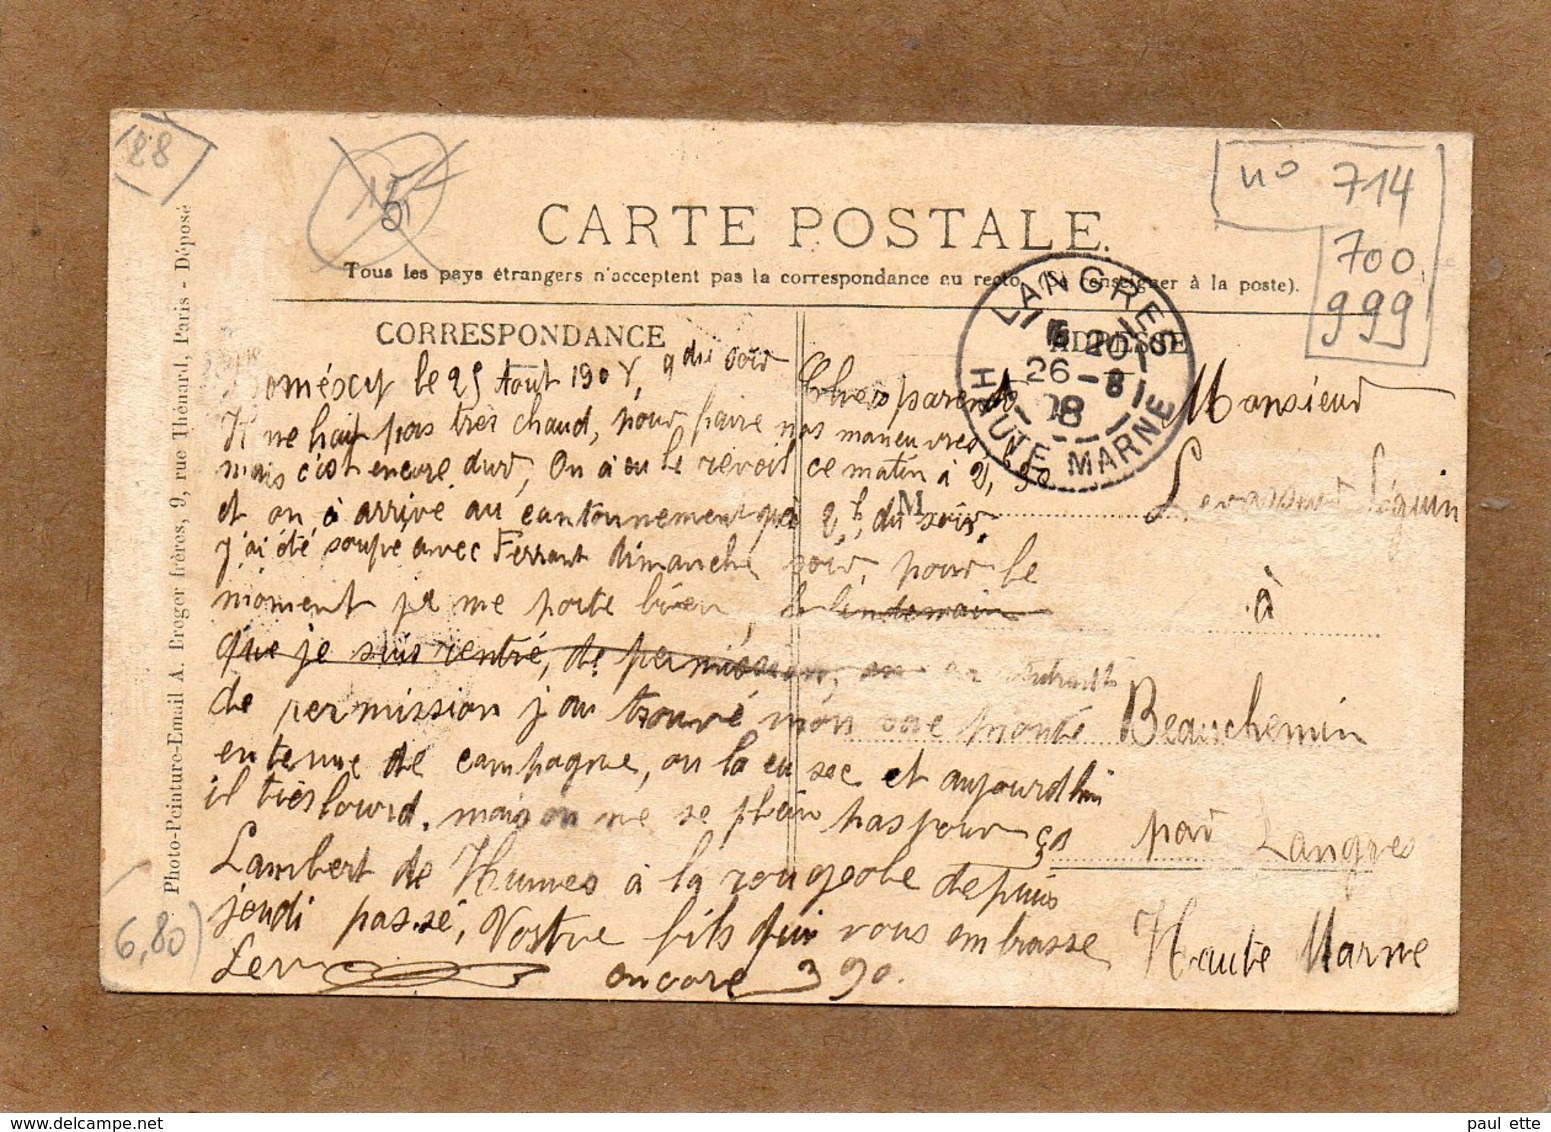 88
15
nº 714
700
999
CARTE POSTALE.
Tous les pays étrangers n'acceptent pas la correspondance au recto. (Se renseigner à la poste).
CORRESPONDANCE
ADRESSE
LANGRES
20
26 - 8
08
HAUTE MARNE
Photo-Peinture-Email A. Breger frères, 9, rue Thénard, Paris - Déposé
le 25 Aout 1908, 9 du soir Chers parents
Il ne fait pas très chaud, pour faire nos manœuvres
mais c'est encore dur, On à eu le réveil ce matin à 2,30
et on à arrivé au cantonnement qu'à 2 h du soir.
J'ai été soupé avec Ferrant dimanche soir, pour le
moment je me porte bien, le lendemain
que je suis rentré, de permission, en
de permission j'ai trouvé mon sac monté
en tenue de campagne, on la eu sec et aujourdhui
il très lourd. mais on ne se plain pas pour ça
Lambert de Humes à la rougeole depuis
jeudi passé, Vostre fils qui vous embrasse
encore 390.
Monsieur
M Levasseur Séguin
à
Beauchemin
par Langres
Haute Marne
6,80
paul ette